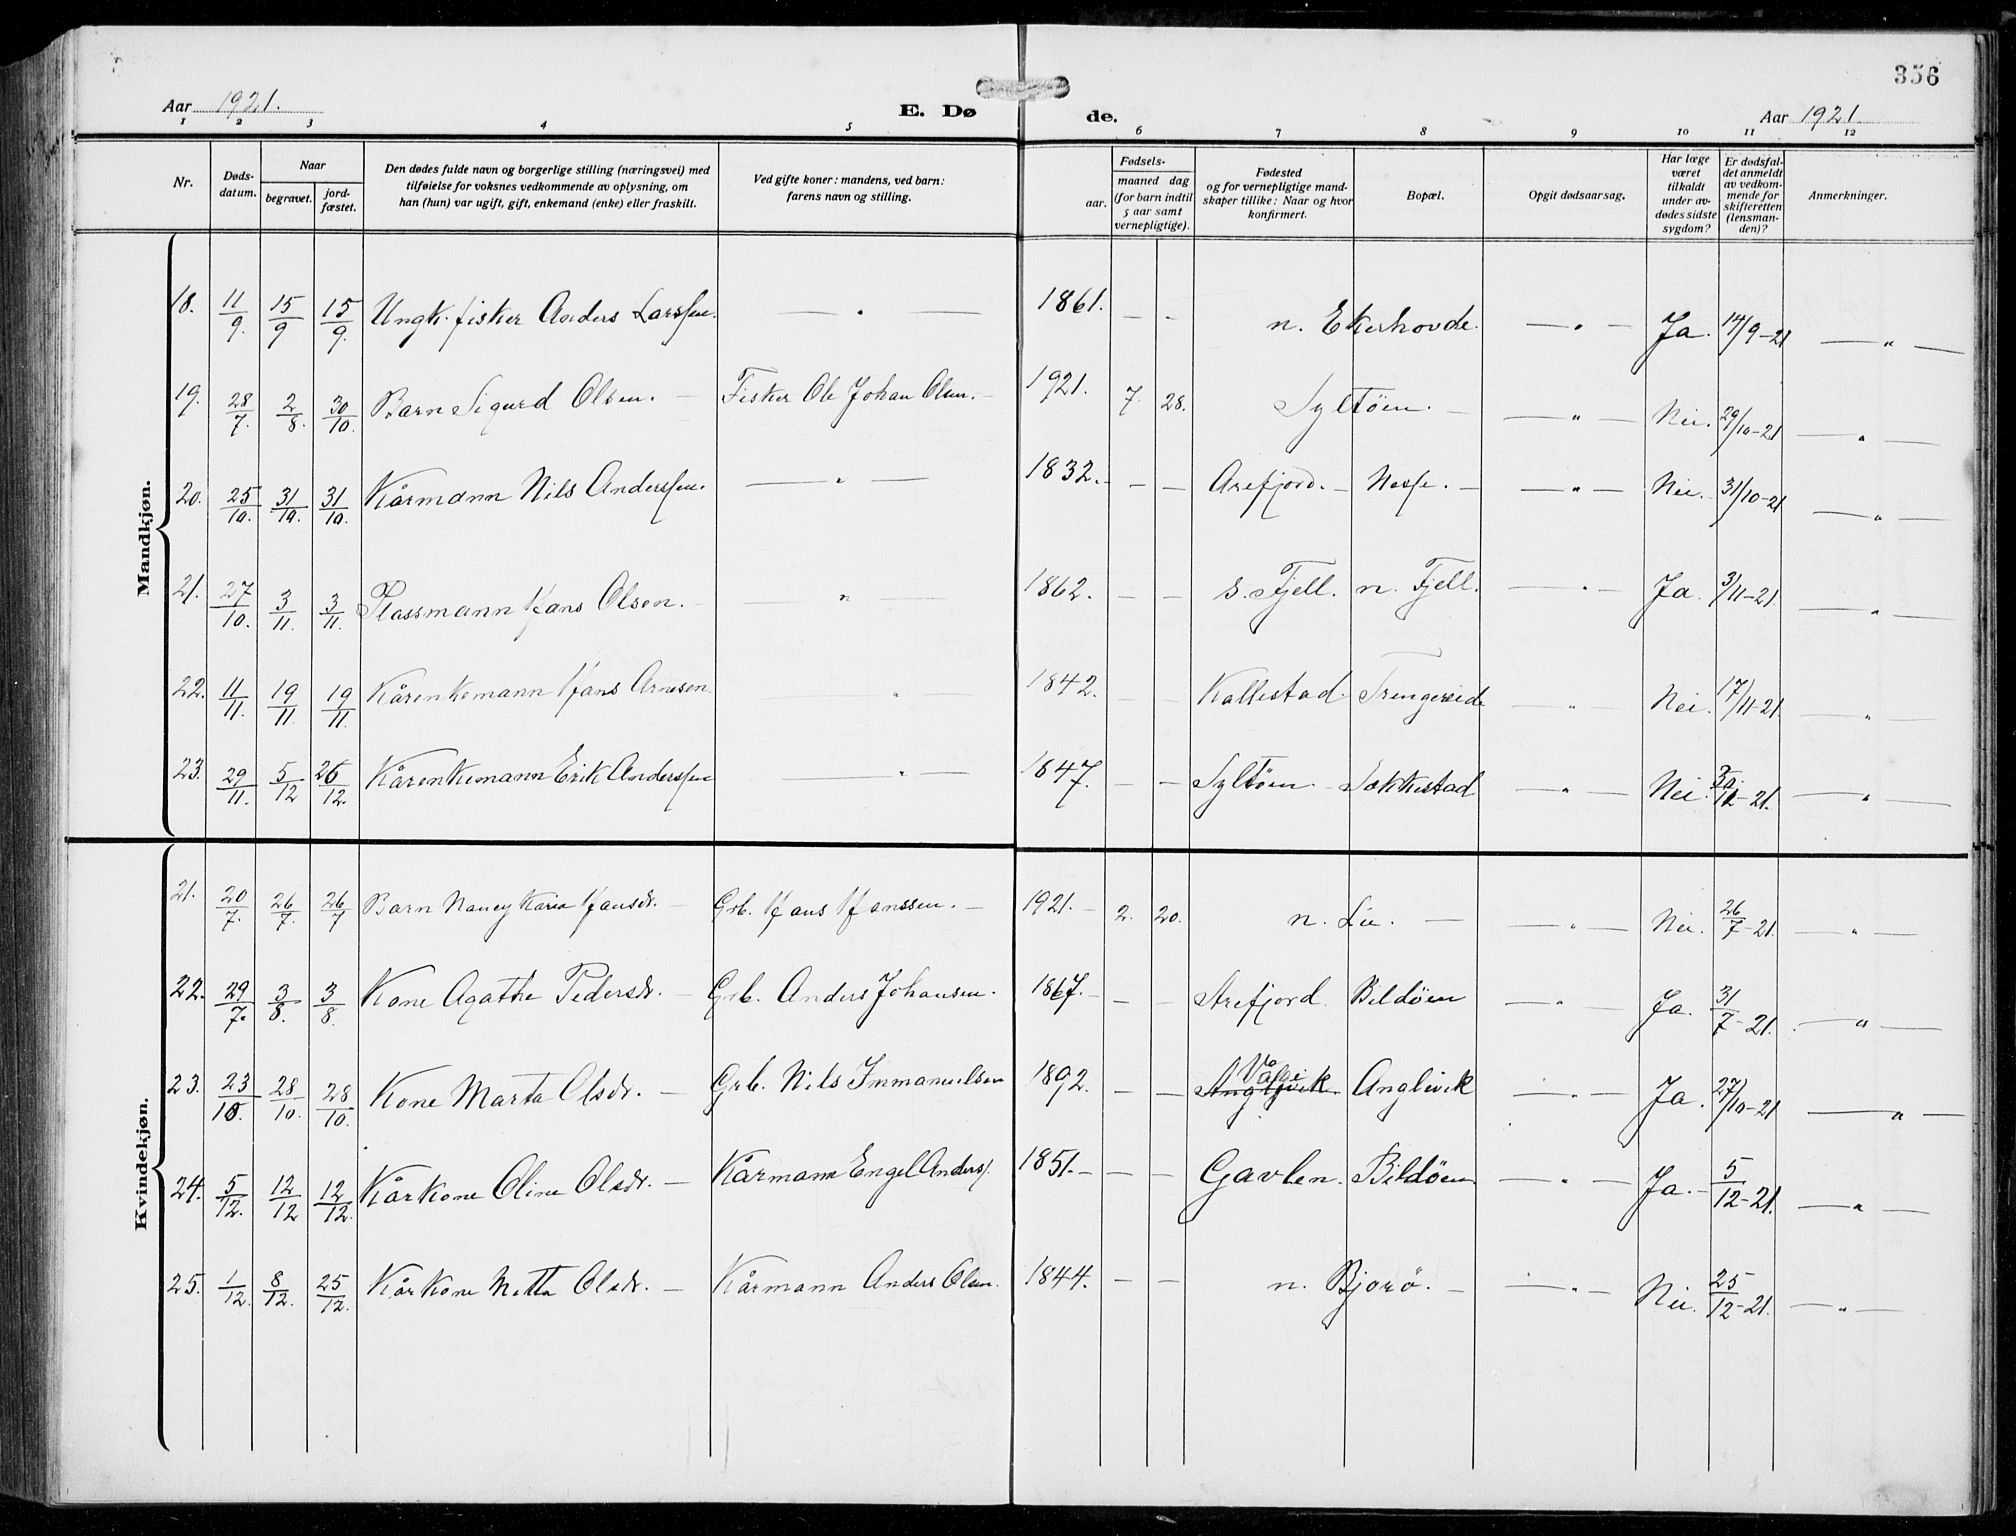 356
Aar 1921. E. Dø de. Aar 1921
1 2 3 4 5 6 7 8 9 10 11 12
Nr. Døds-datum. Naar begravet. jord-fæstet. Den dødes fulde navn og borgerlige stilling (næringsvei) med tilføielse for voksnes vedkommende av oplysning, om han (hun) var ugift, gift, enkemand (enke) eller fraskilt. Ved gifte koner: mandens, ved barn: farens navn og stilling. Fødsels- aar. maaned dag (for barn indtil 5 aar samt vernepligtige). Fødested og for vernepligtige mand-skaper tillike: Naar og hvor konfirmert. Bopæl. Opgit dødsaarsag. Har læge været tilkaldt under av-dødes sidste sygdom? Er dødsfal-det anmeldt av vedkom-mende for skifteretten (lensman-den)? Anmerkninger.
Mandkjøn.
18. 11/9. 15/9 15/9. Ungk. fisker Anders Larssen. — " — 1861. — — n. Ekerhovde. — " — Ja. 14/9-21 — " —
19. 28/7. 2/8. 30/10. Barn Sigurd Olsen. — Fisker Ole Johan Olsen. — 1921. 7. 28. Syltöen. — — " — Nei. 29/10-21 — " —
20. 25/10. 31/10. 31/10. Kårmann Nils Anderssen. — " — 1832. — — Arefjord. — Nesse. — — " — Nei. — 31/10-21 — " —
21. 27/10. 3/11. 3/11. Plassmann Hans Olsen. — — " — 1862. — — s. Fjell. n. Fjell. — " — Ja. 3/11-21. — " —
22. 11/11. 19/11 19/11. Kårenkemann Hans Arnesen. " 1842. — — Kallestad. Trengereide — " — Nei. 17/11-21. — " —
23. 29/11. 5/12 26/12. Kårenkemann Erik Anderssen — " — 1847. — — Syltöen. Sekkestad — " — Nei. 30/11-21. — " —
Kvindekjøn.
21. 20/7. 26/7. 26/7 Barn Nancy Karia Hansdr. — Grb. Hans Hanssen. — 1921. — 2. 20. n. Lie. — — " — Nei. 26/7-21. — " —
22. 29/7. 3/8. 3/8 Kone Agathe Pedersdr. — Grb. Anders Johansen. 1867. — — — Arefjord. Bildöen — " — Ja. 31/7-21. — " —
23. 23/10. 28/10. 28/10. Kone Marta Olsdr. — Grb. Nils Immanuelsen 1892. — — Anglevik Anglevik — " — Ja. 27/10-21 — " —
24. 5/12. 12/12 12/12. Kårkone Oline Olsdr. — Kårmann Engel Anders. 1851. — — — Gavlen. Bildöen — " — Ja. — 5/12-21. — " —
25. 1/12. 8/12. 25/12. Kårkone Metta Olsdr. — Kårmann Anders Olsen. 1844. — — n. Bjorö. — — " — Nei. 25/12-21. — " —